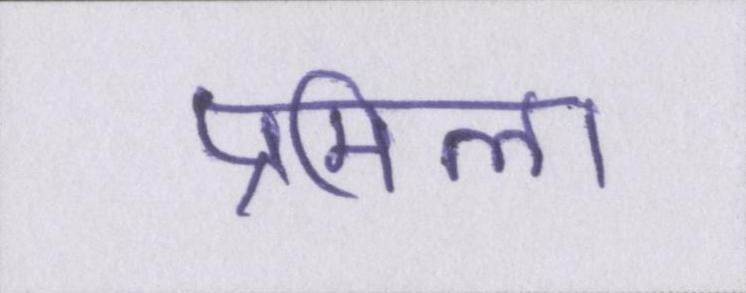 प्रमिला